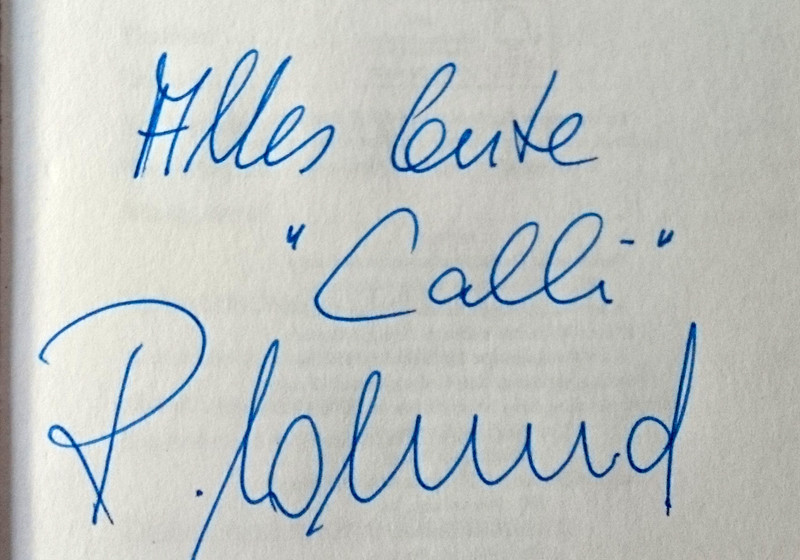 Alles Gute
"Calli"
R. Calmund